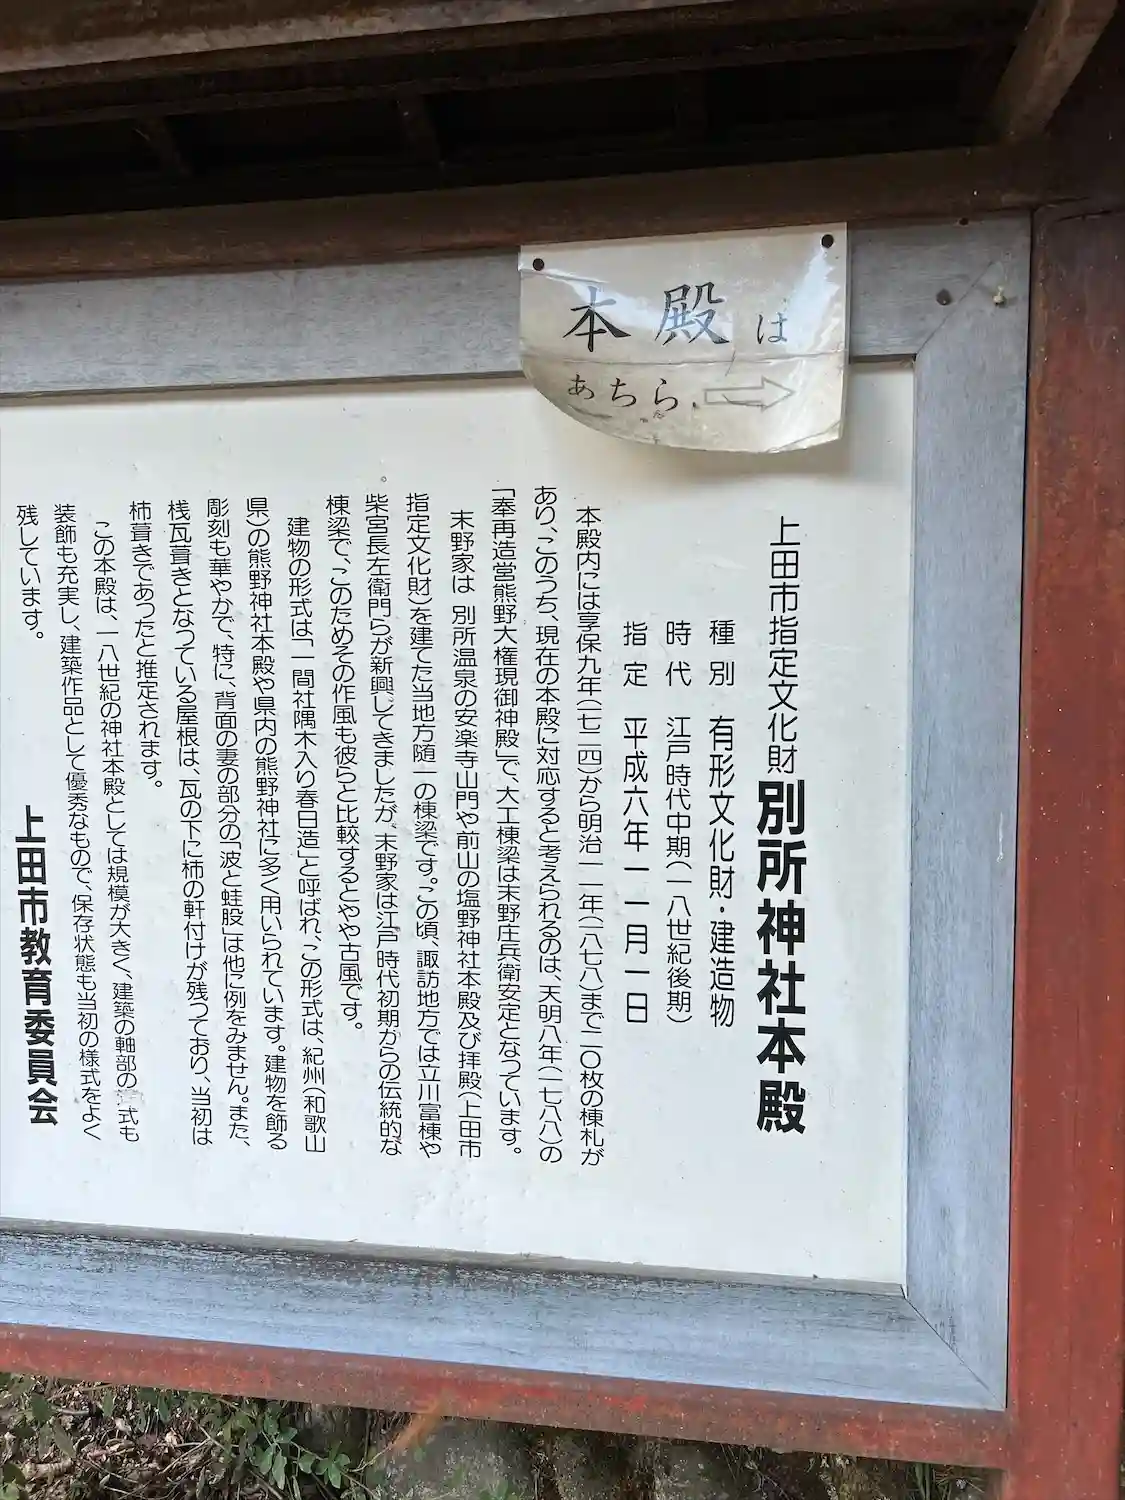 本殿は
あちら
上田市指定文化財 別所神社本殿
種別 有形文化財・建造物
時代 江戸時代中期(一八世紀後期)
指定 平成六年一一月一日
本殿内には享保九年(一七二四)から明治一一年(一八七八)まで二〇枚の棟札が
あり、このうち、現在の本殿に対応すると考えられるのは、天明八年(一七八八)の
「奉再造営熊野大権現御神殿」で、大工棟梁は末野庄兵衛安定となっています。
末野家は 別所温泉の安楽寺山門や前山の塩野神社本殿及び拝殿(上田市
指定文化財)を建てた当地方随一の棟梁です。この頃、諏訪地方では立川富棟や
柴宮長左衛門らが新興してきましたが、末野家は江戸時代初期からの伝統的な
棟梁で、このためその作風も彼らと比較するとやや古風です。
建物の形式は「一間社隅木入り春日造」と呼ばれ、この形式は、紀州(和歌山
県)の熊野神社本殿や県内の熊野神社に多く用いられています。建物を飾る
彫刻も華やかで、特に、背面の妻の部分の「波と蛙股」は他に例をみません。また、
桟瓦葺きとなっている屋根は、瓦の下に杮の軒付けが残っており、当初は
杮葺きであったと推定されます。
この本殿は、一八世紀の神社本殿としては規模が大きく、建築の軸部の 式も
装飾も充実し、建築作品として優秀なもので、保存状態も当初の様式をよく
残しています。
上田市教育委員会